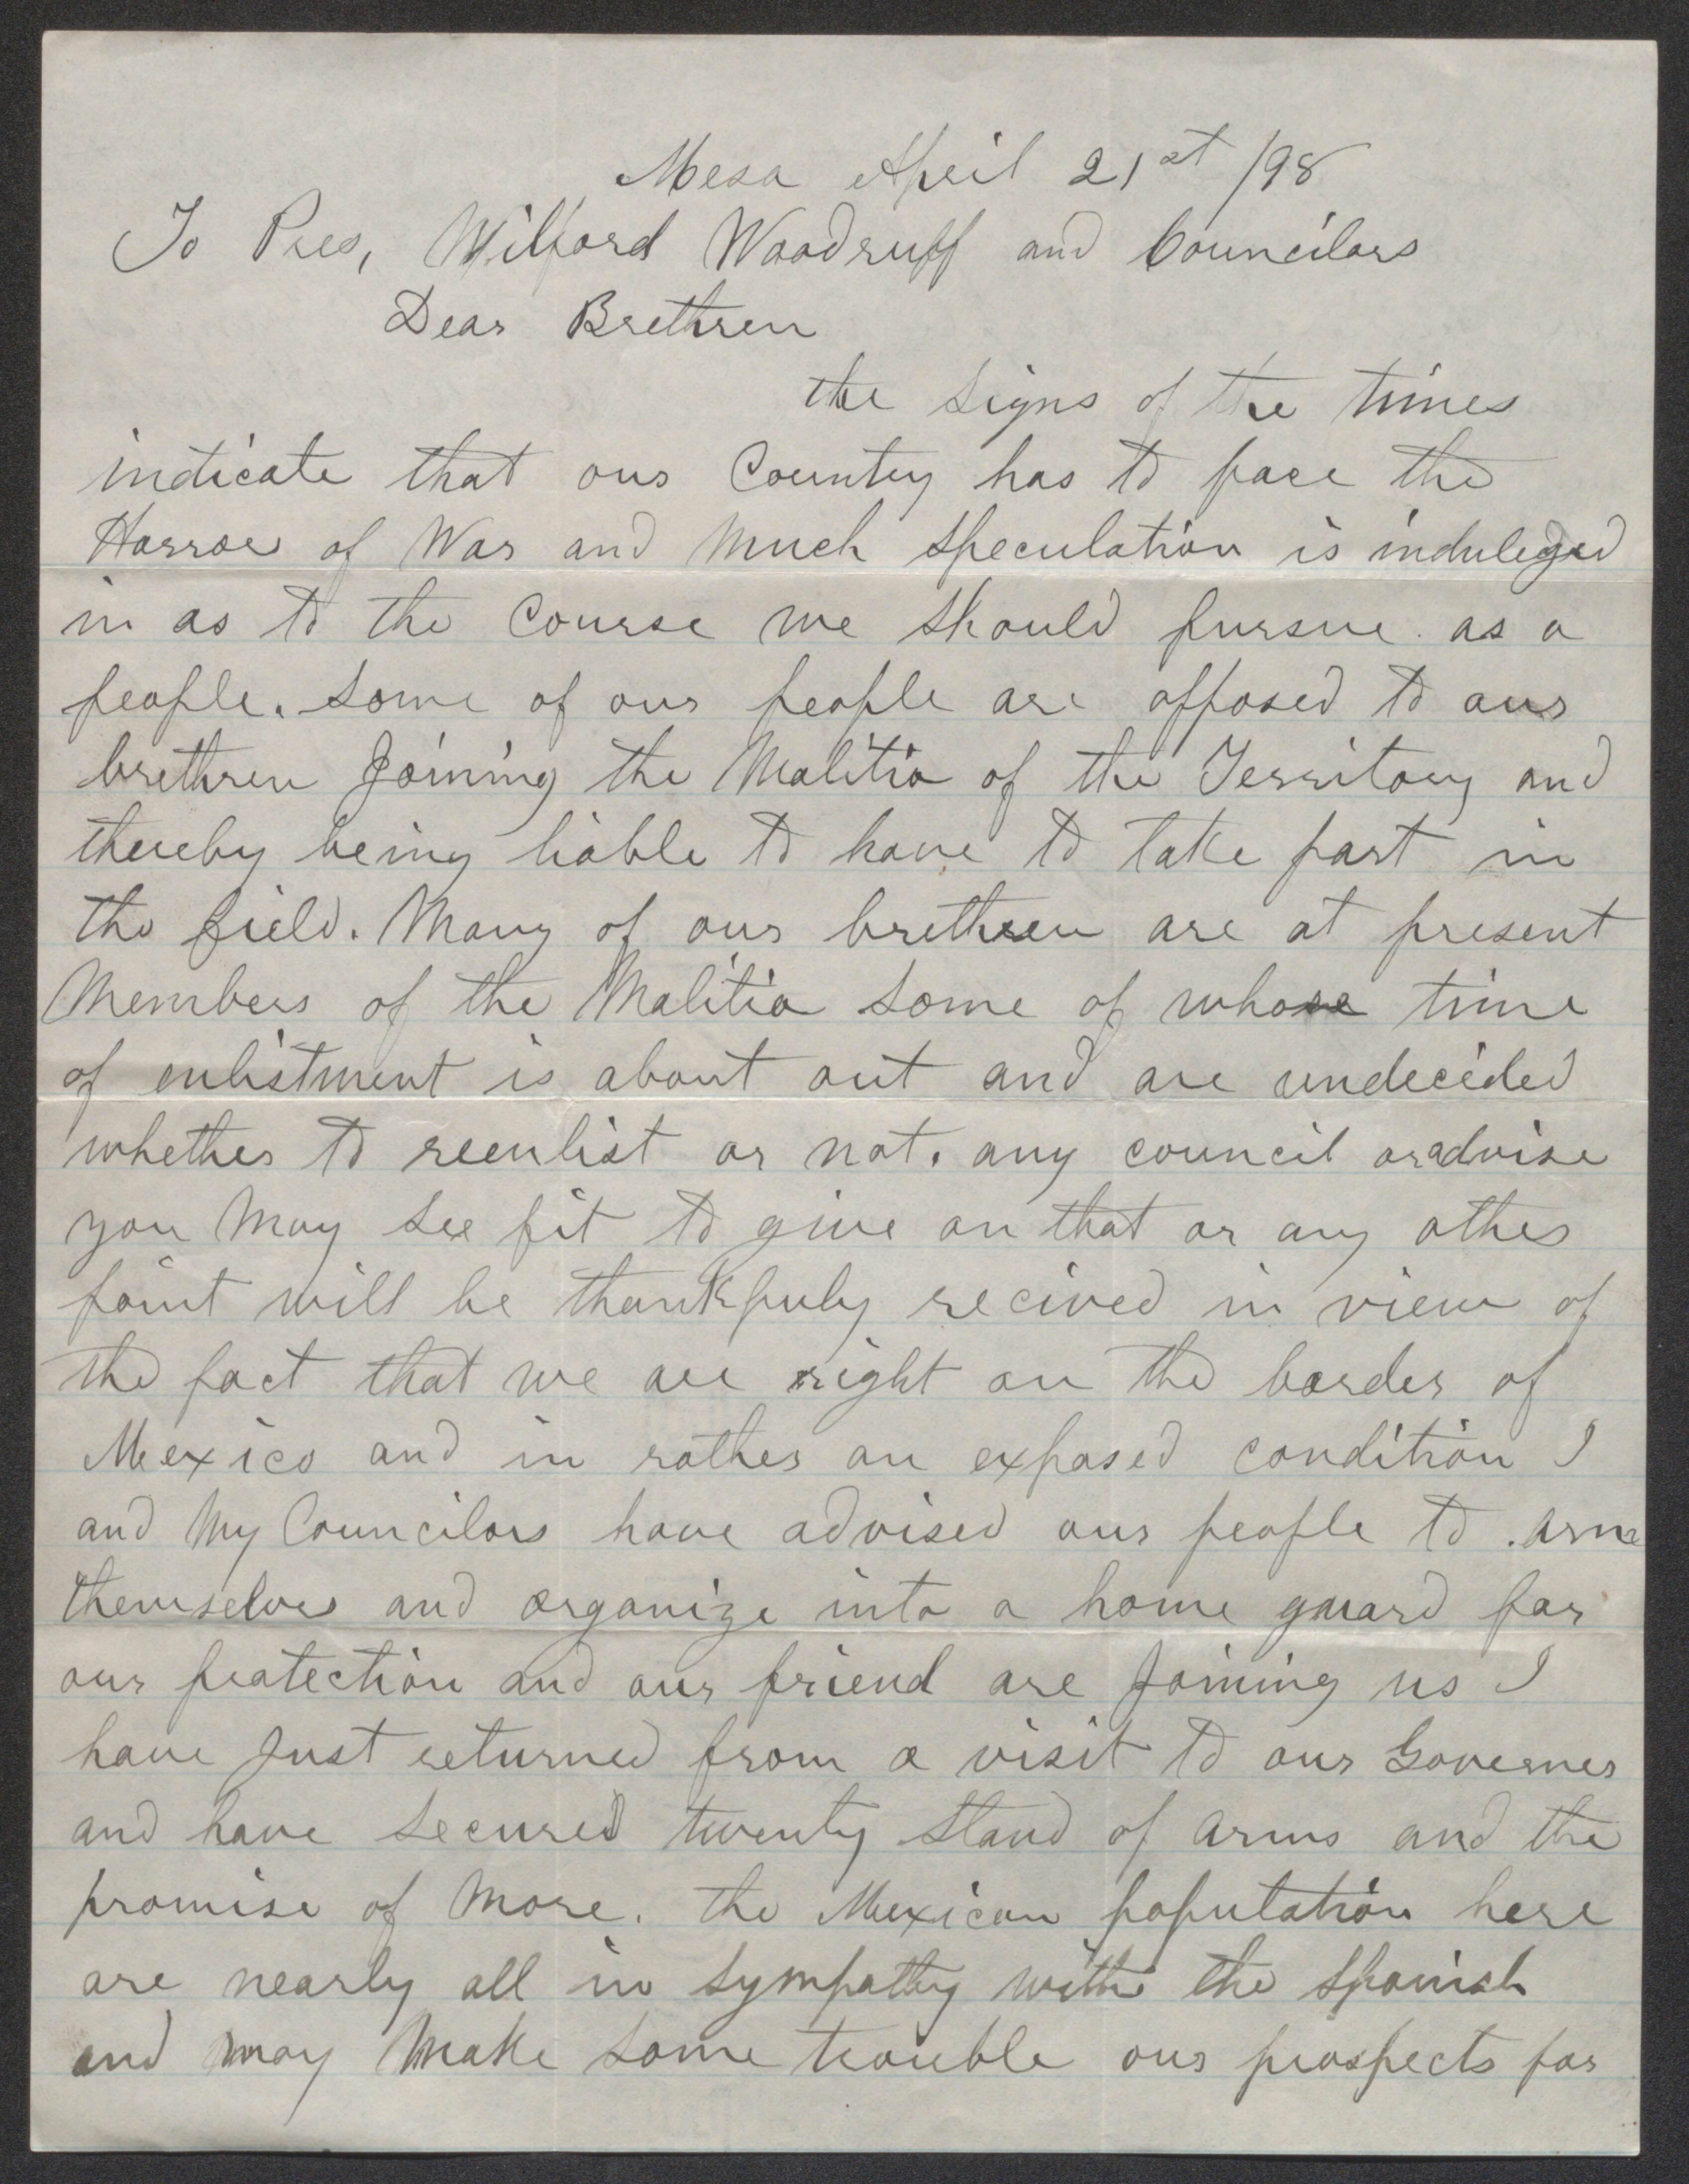 Mesa April 21st /98
To Pres, Wilford Woodruff and Councilors
Dear Brethren
the signs of the times
indicate that our Country has to face the
Horror of War and Much speculation is induleged
in as to the Course we should pursue as a
people. some of our people are opposed to our
brethren Joining the Malitia of the Territory and
thereby being liable to have to take part in
the field. Many of our brethren are at present
Members of the Malitia some of whose time
of enlistment is about out and are undecided
whether to reenlist or not. any council or advise
you May see fit to give on that or any other
point will be thankfuly recived in view of
the fact that we are right on the border of
Mexico and in rather an exposed condition I
and My Councilors have advised our people to arm
themselves and organize into a home guard for
our protection and our friend are Joining us I
have Just returned from a visit to our Governer
and have secured twenty stand of arms and the
promise of More. the Mexican population here
are nearly all in sympathy with the spanish
and may Make some trouble our prospects for